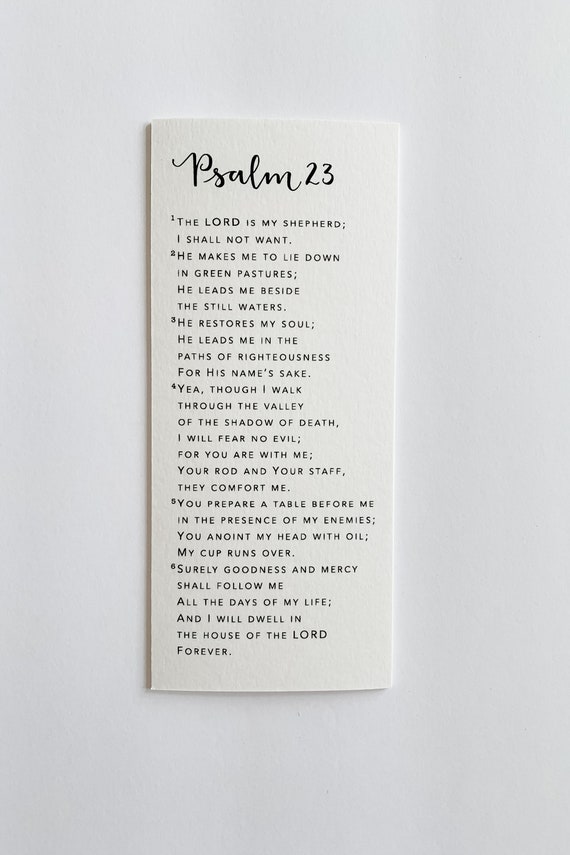 Psalm 23
¹The LORD is my shepherd;
I shall not want.
²He makes me to lie down
in green pastures;
He leads me beside
the still waters.
³He restores my soul;
He leads me in the
paths of righteousness
For His name's sake.
⁴Yea, though I walk
through the valley
of the shadow of death,
I will fear no evil;
for you are with me;
Your rod and Your staff,
they comfort me.
⁵You prepare a table before me
in the presence of my enemies;
You anoint my head with oil;
My cup runs over.
⁶Surely goodness and mercy
shall follow me
All the days of my life;
And I will dwell in
the house of the LORD
Forever.